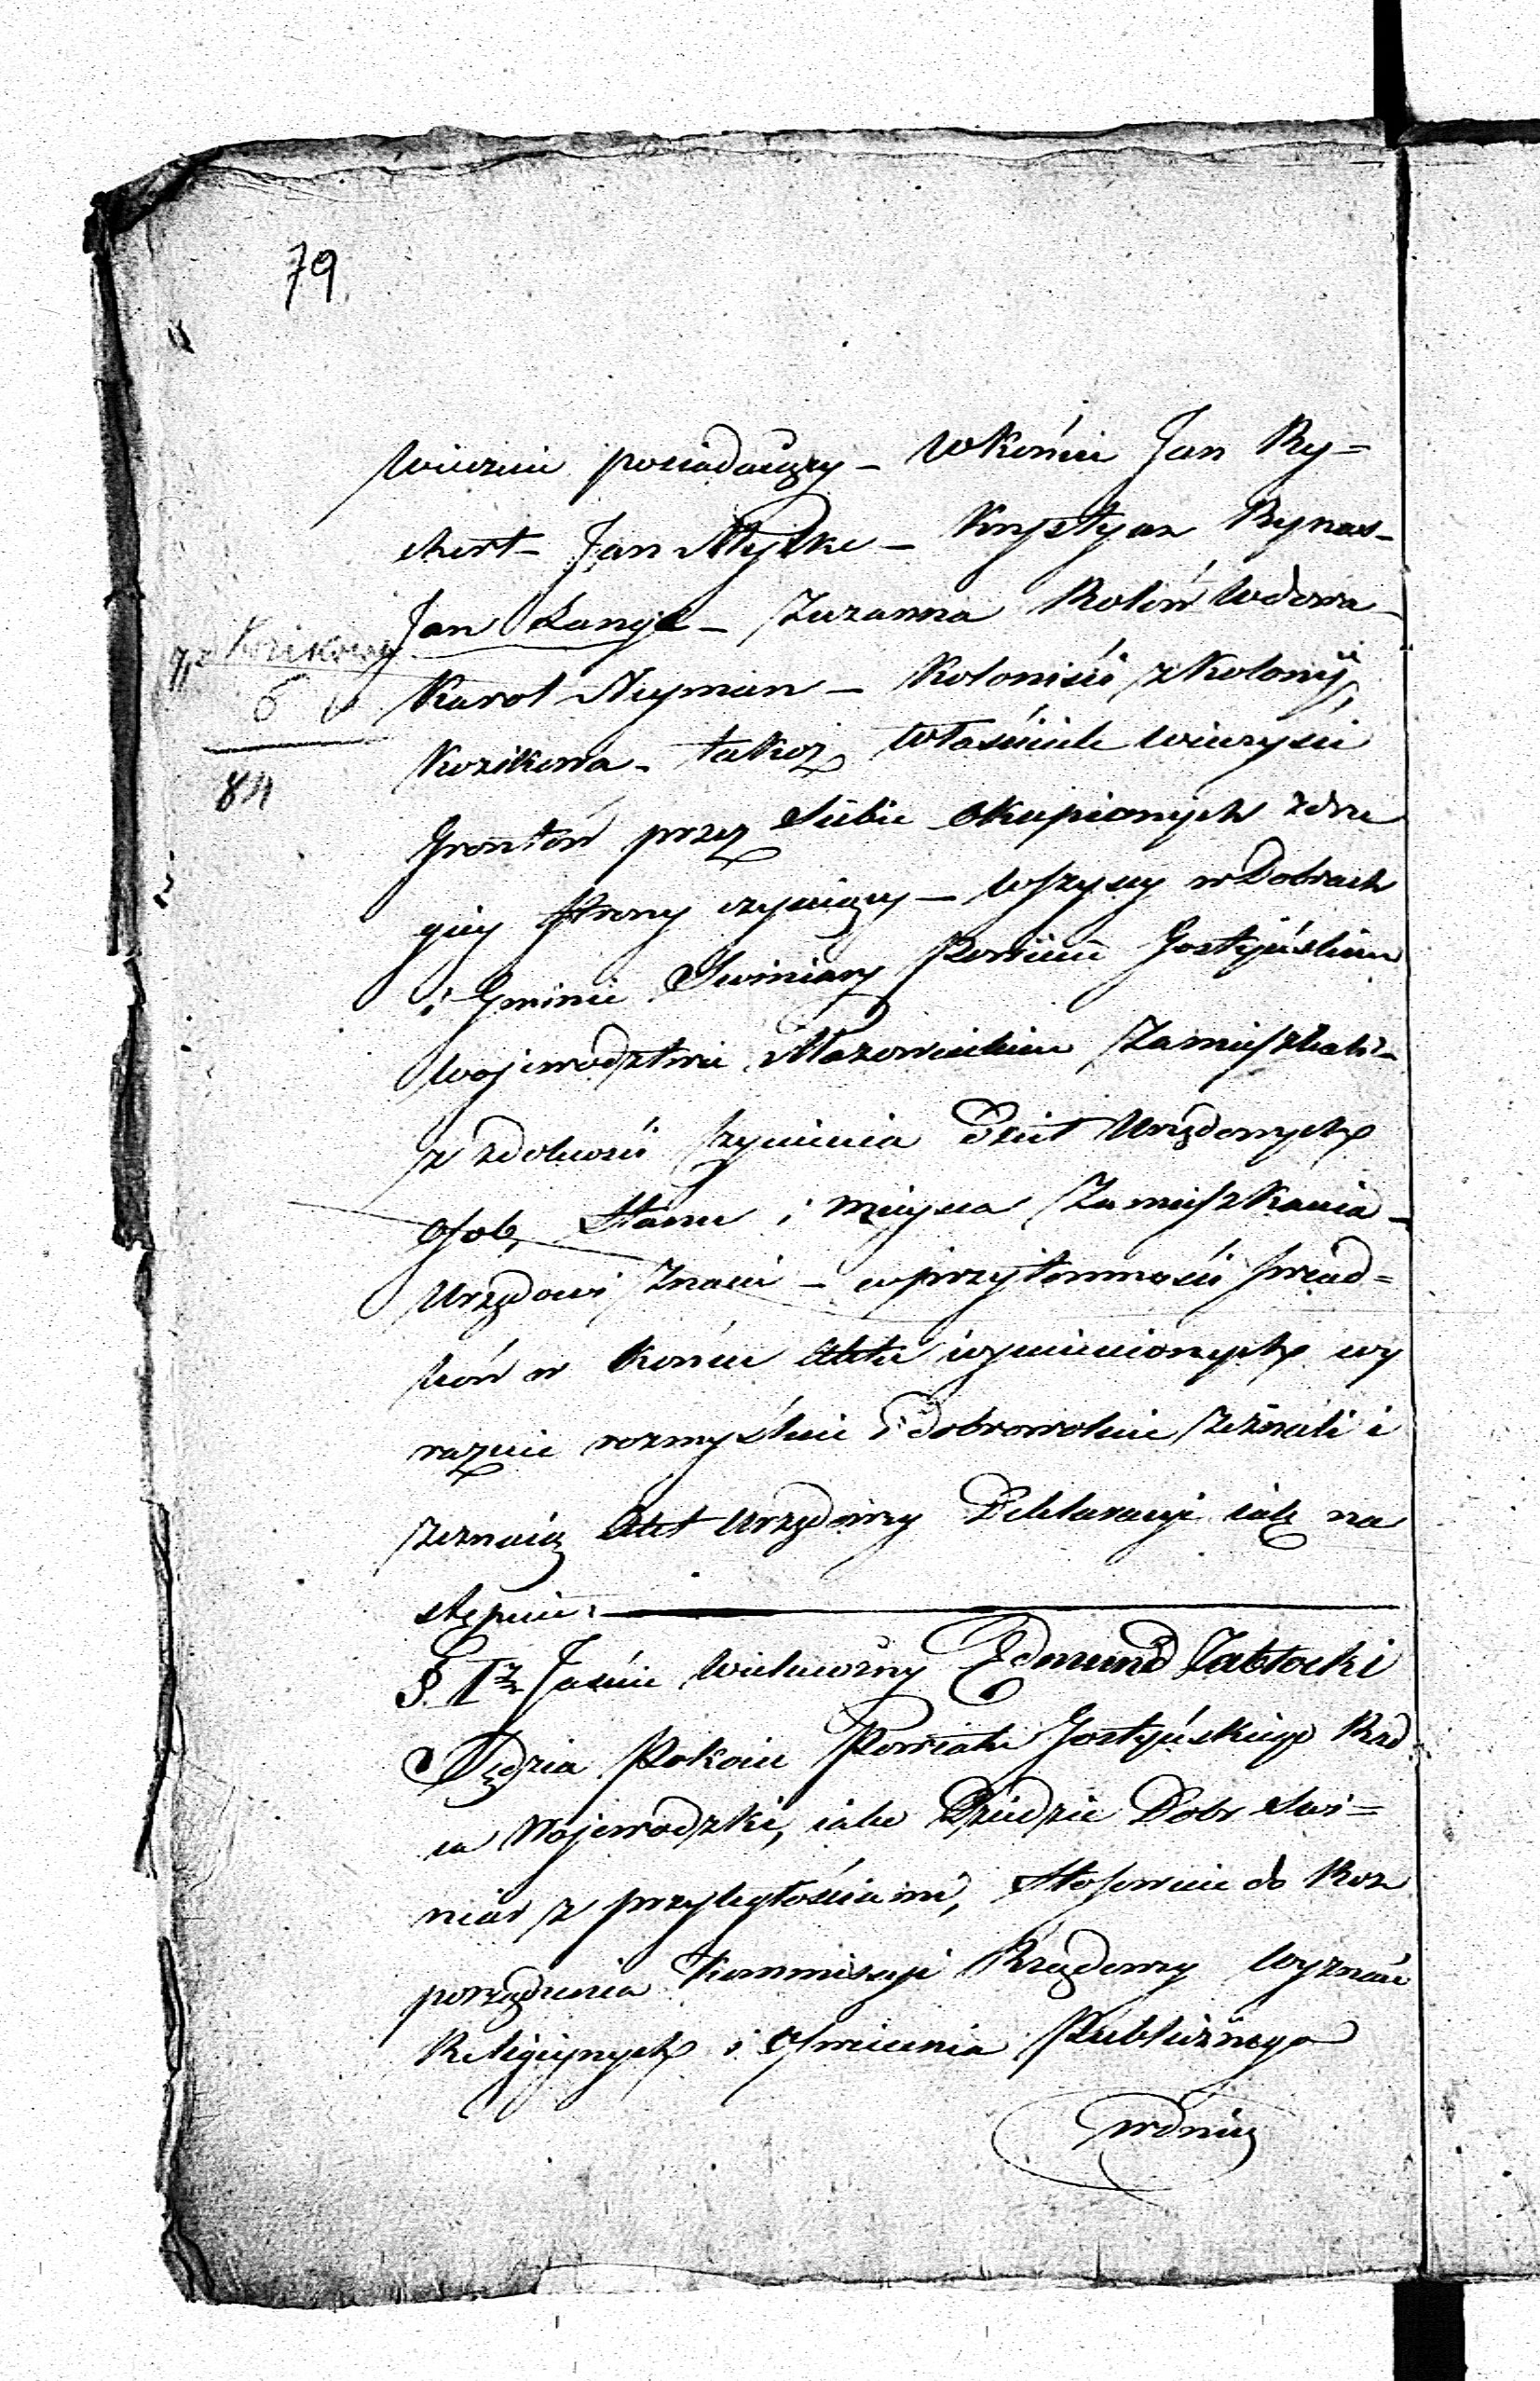 79
wieczni posiadaczy – w Końcu Jan Ry=
chert – Jan Mylke – Krystyan Rynas –
Jan Lange – Zuzanna Rolów wdowa –
Karol Neyman – Koloniści z Kolonij
Kozikowa – takoż właściciele wieczyści
6
84
Grontów przez siebie okupionych zdru
giey strony czyniący – wszyscy w Dobrach
i Gminie Swiniary Powiecie Gostyńskim
Wojewodztwie Mazowieckim zamieszkali –
z zdolności czynienia Dzieł Urzędowych
osob, stanu i mieysca zamieszkania –
Urzędowi znani – w przytomności swiad=
ków w końcu Aktu wymienionych wy
raznie rozmyślnie i dobrowolnie zeznali i
zeznaią Akt Urzędowy Deklaracyi iak na
stępuie:
§. 1. Jaśnie Wielmożny Edmund Zabłocki
Sędzia Pokoiu Powiatu Gostyńskiego Rad
ca Wojewodzki, iako Dziedzic Dobr Swi=
niar z przyległościami, stosownie do Roz
porządzenia Kommissyi Rządowey Wyznań
Religiynych i Oswiecenia Publicznego
w dniu